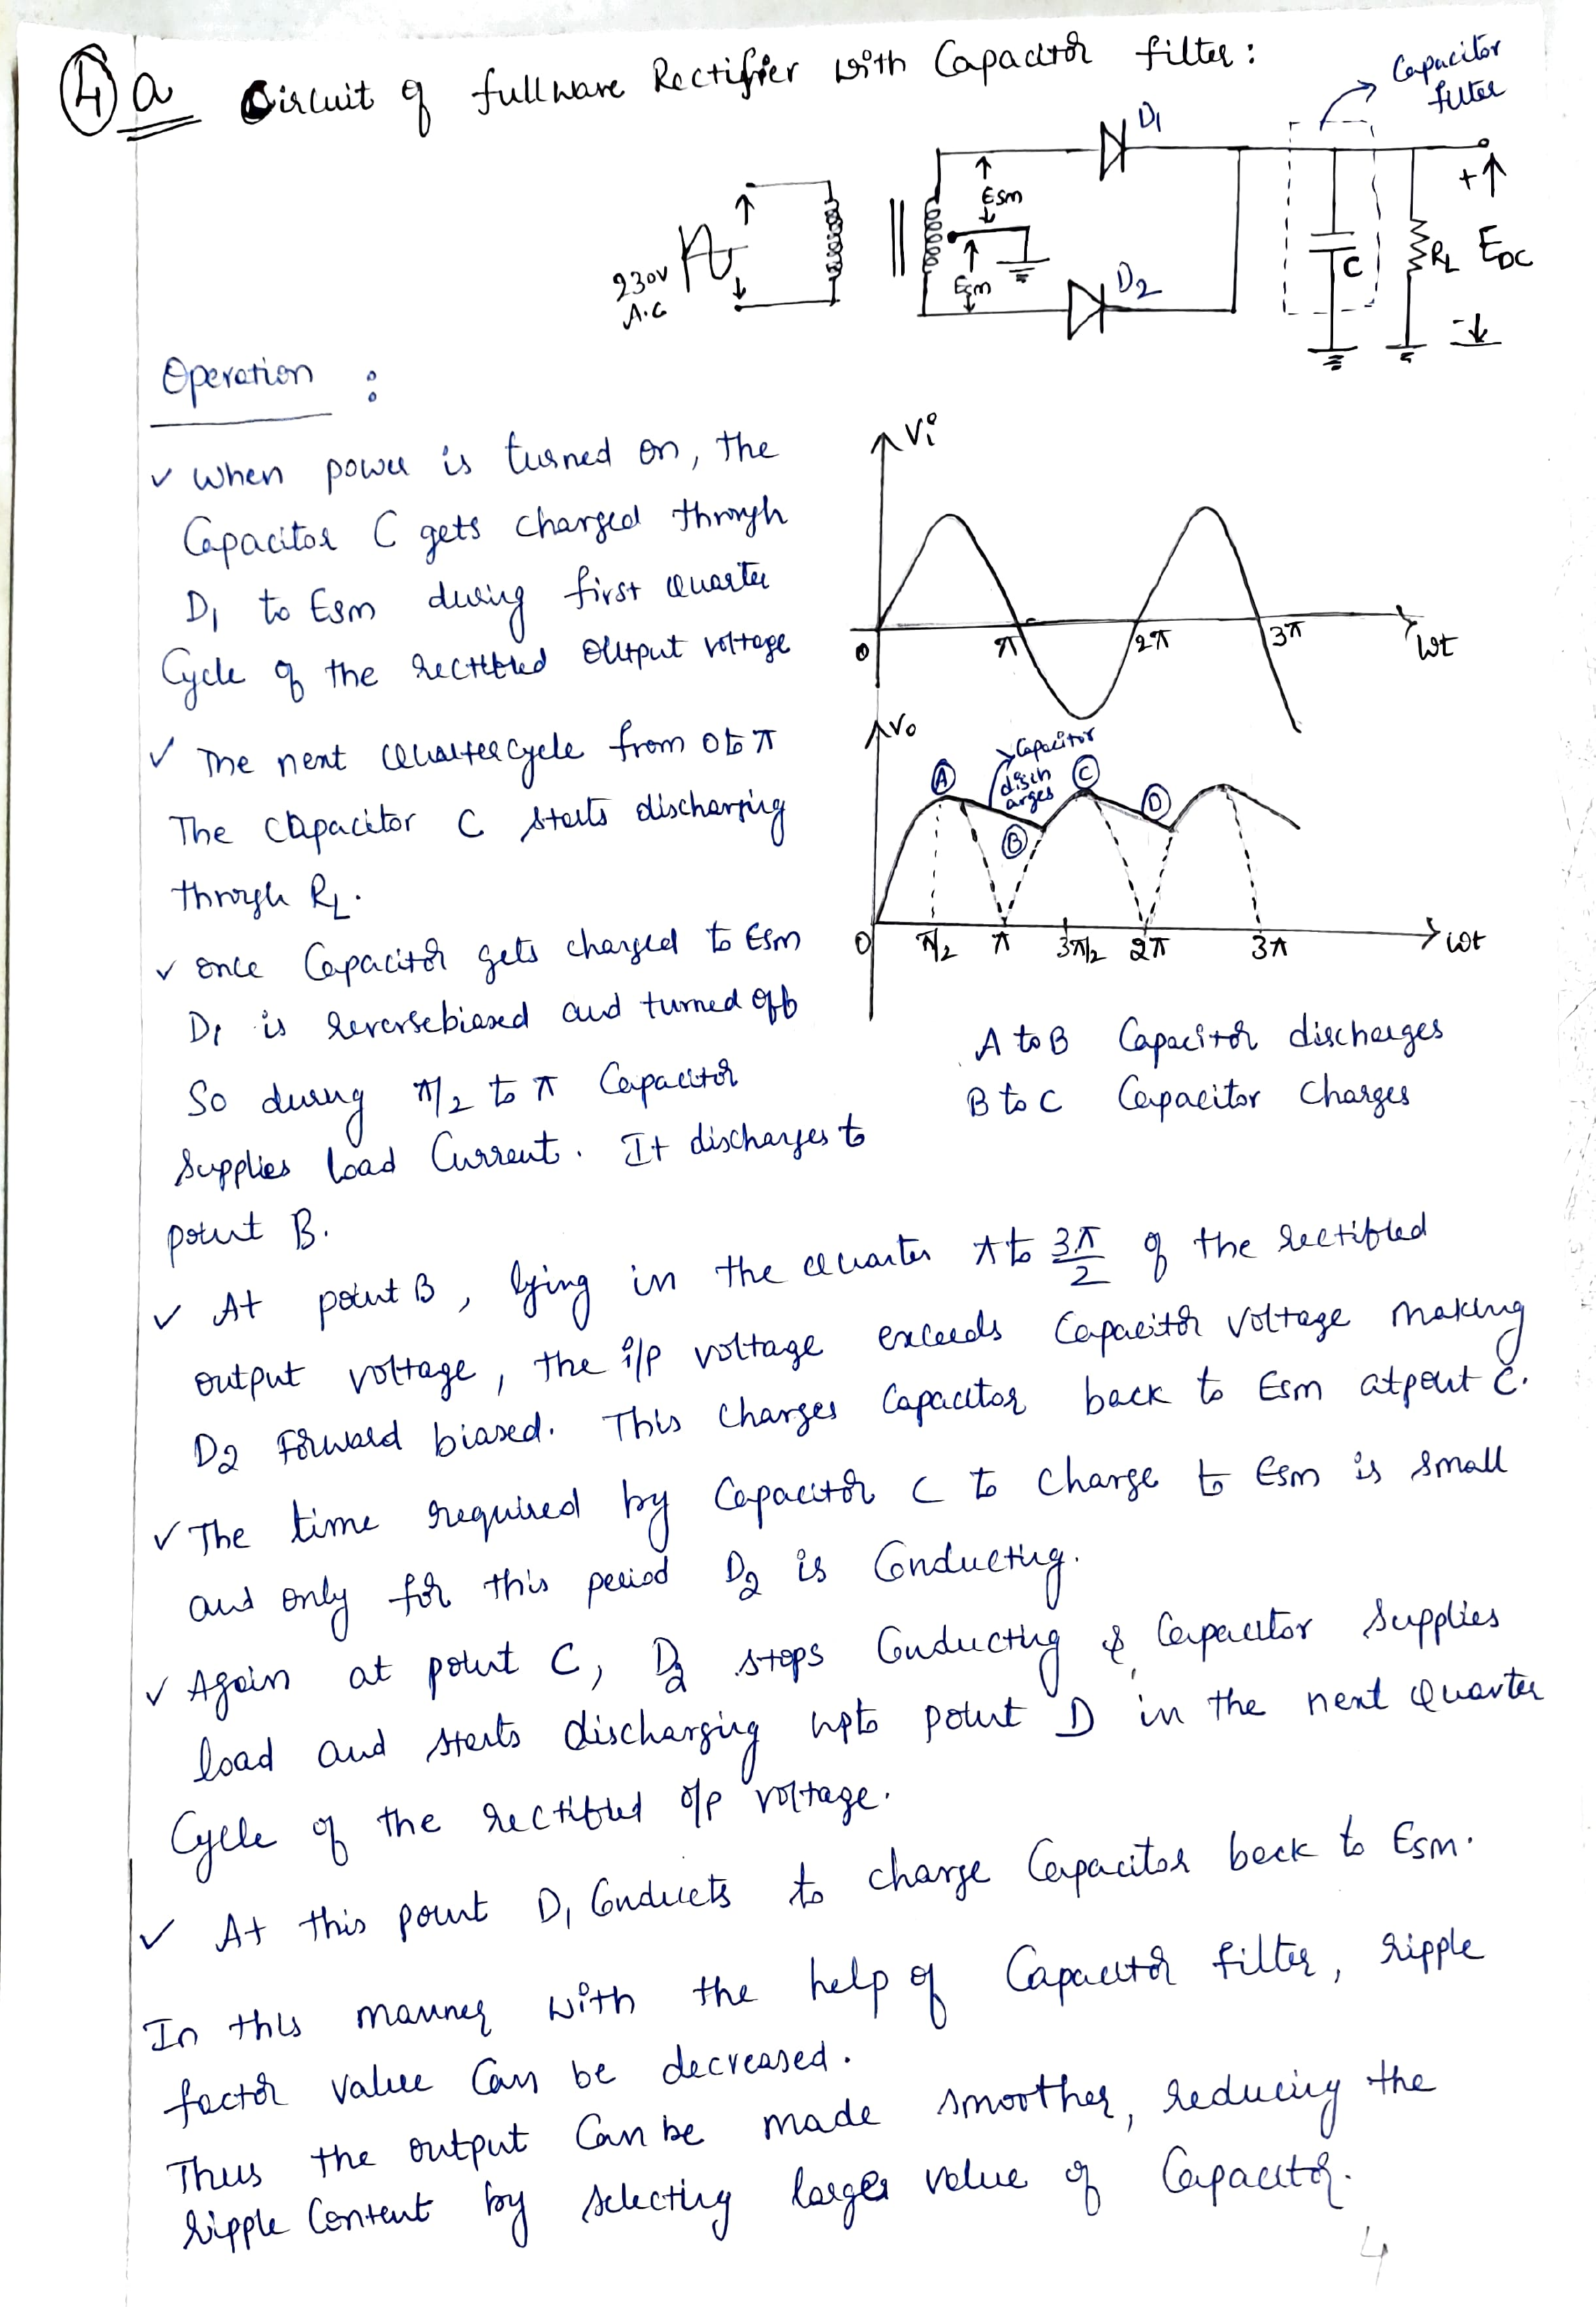 4 a Circuit of fullwave Rectifier with Capacitor filter:
Capacitor
filter
D1
Esm
230V
A.C
Esm
D2
C
RL
+
EDC
-
Operation :
✓ When power is turned on, the
Capacitor C gets charged through
D1 to Esm during first quarter
Cycle of the rectified output voltage
✓ The next quarter cycle from 0 to π
The capacitor C starts discharging
through RL.
✓ once Capacitor gets charged to Esm
D1 is reversebiased and turned off
So during π/2 to π Capacitor
Supplies load Current. It discharges to
point B.
Vi
0 π 2π 3π ωt
Vo
A
Capacitor
disch
arges
B
C
D
0 π/2 π 3π/2 2π 3π ωt
A to B Capacitor discharges
B to C Capacitor Charges
✓ At point B, lying in the quarter π to 3π/2 of the rectified
output voltage, the i/p voltage exceeds Capacitor voltage making
D2 Forward biased. This charges Capacitor back to Esm at point C.
✓ The time required by Capacitor C to charge to Esm is small
and only for this period D2 is Conducting.
✓ Again at point C, D2 stops Conducting & Capacitor supplies
load and starts discharging upto point D in the next quarter
Cycle of the rectified o/p voltage.
✓ At this point D1 Conducts to charge Capacitor back to Esm.
In this manner with the help of Capacitor filter, ripple
factor value Can be decreased.
Thus the output Can be made smoother, reducing the
ripple Content by selecting larger value of Capacitor.
4